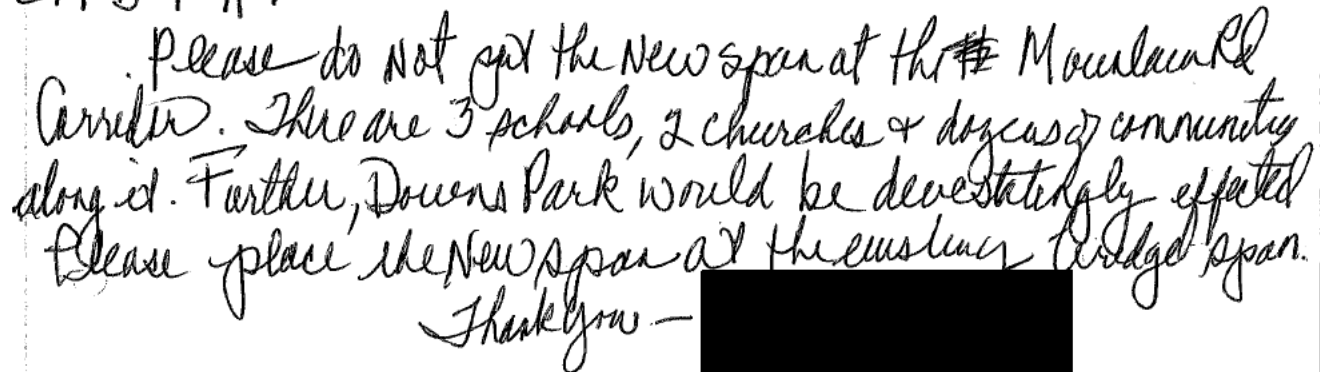 Please do Not put the New span at the Mountain Rd
Corridor. There are 3 schools, 2 churches & dozens of communities
along it. Further, Downs Park would be devestatingly effected
Please place the New span at the existing bridge span.
Thank you —